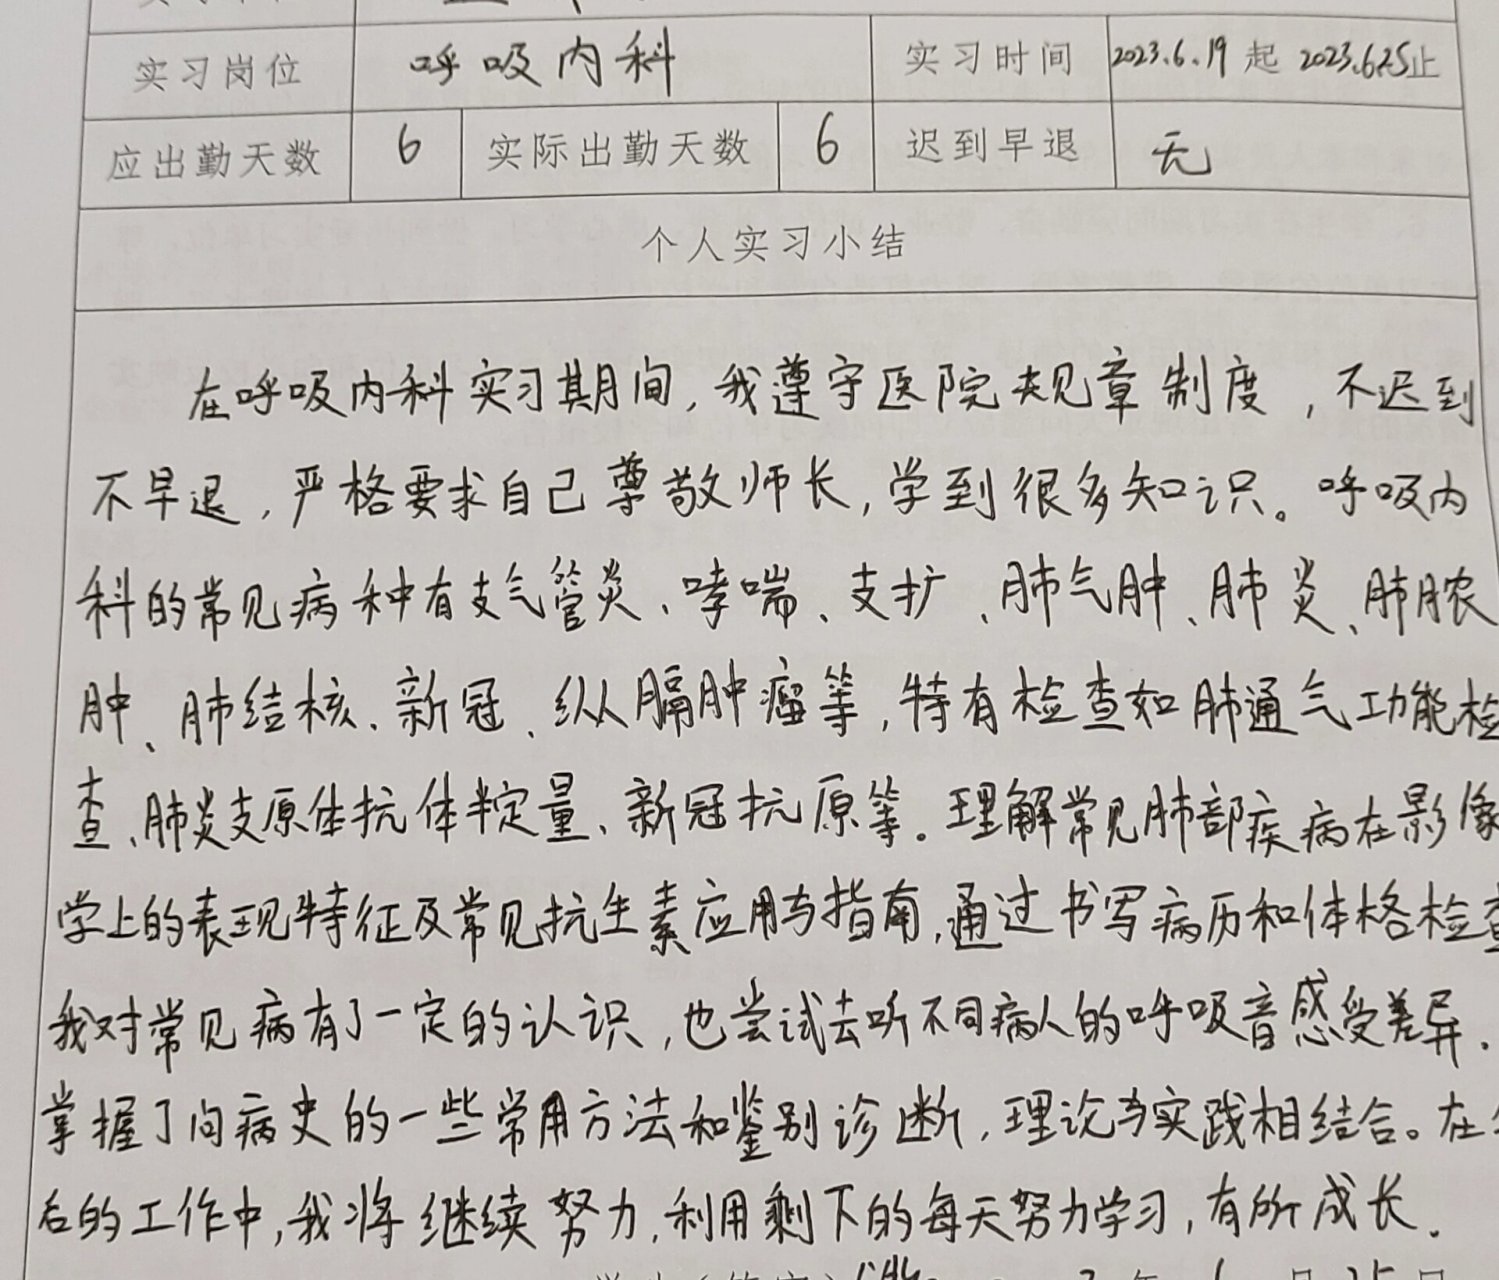 实习岗位 呼吸内科 实习时间 2023.6.19 起 2023.6.25止
应出勤天数 6 实际出勤天数 6 迟到早退 无
个人实习小结
在呼吸内科实习期间,我遵守医院规章制度,不迟到
不早退,严格要求自己尊敬师长,学到很多知识。呼吸内
科的常见病种有支气管炎、哮喘、支扩、肺气肿、肺炎、肺脓
肿、肺结核、新冠、纵膈肿瘤等,特有检查如肺通气功能检
查、肺炎支原体抗体半定量、新冠抗原等。理解常见肺部疾病在影像
学上的表现特征及常见抗生素应用与指南,通过书写病历和体格检查
我对常见病有了一定的认识,也尝试去听不同病人的呼吸音感受差异.
掌握了问病史的一些常用方法和鉴别诊断,理论与实践相结合。在
后的工作中,我将继续努力,利用剩下的每天努力学习,有所成长.
年 6 月 25 日